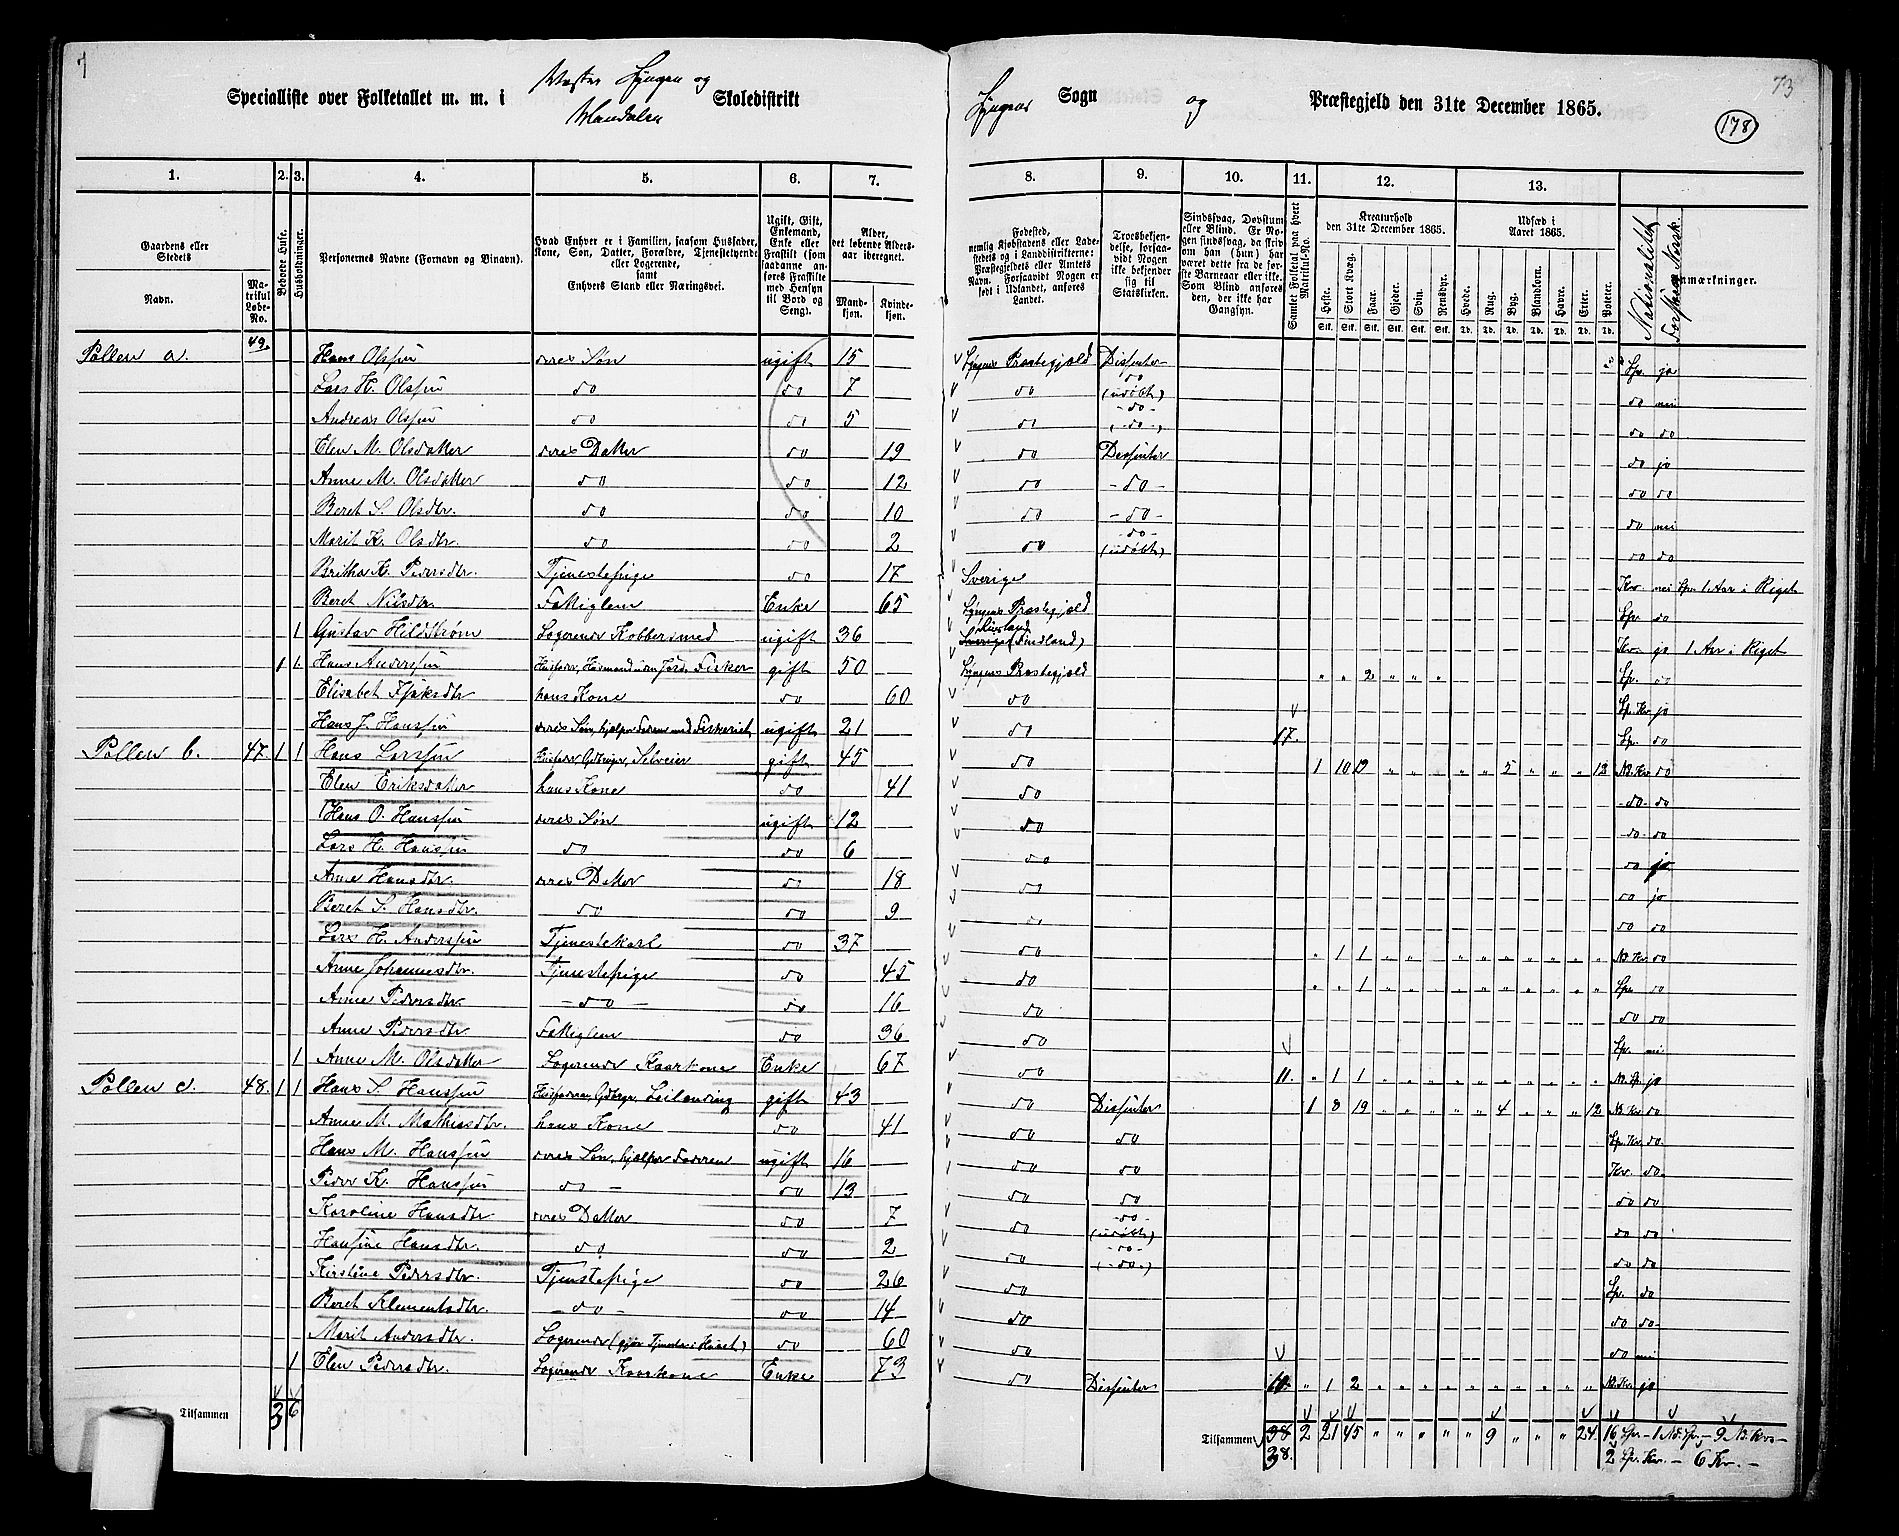 7
Specialliste over Folketallet m. m. i Wester Lyngen og Skoledistrikt
Lyngens Sogn og Præstegjeld den 31te December 1865.
73
178
1. 2. 3. 4. 5. 6. 7. 8. 9. 10. 11. 12. 13.
Gaardens eller Stedets
Navn. Matrikul Løbe-No.
Beboede Huse.
Husholdninger.
Personernes Navne (Fornavn og Tilnavn).
Hvad Enhver er i Familien, saasom Husfader, Kone, Søn, Datter, Forældre, Tjenestetyende eller Logerende, samt Enhvers Stand eller Næringsvei.
Ugift, Gift, Enkemand, Enke eller Fraskilt (saadanne anføres Fraskilte med Hensyn til Bord og Seng).
Alder, det løbende Aldersaar iberegnet.
Mandkjøn. Kvindekjøn.
Fødested, nemlig Kjøbstadens eller Ladestedets og i Landdistrikterne: Præstegjeldets eller Amtets Navn. Forsaavidt Nogen er født i Udlandet, anføres Landet.
Troesbekjendelse, forsaavidt Nogen ikke bekjender sig til Statskirken.
Samlet Folketal paa hvert Matrikul-No.
Kreaturhold den 31te December 1865.
Heste. Stort Kvæg. Faar. Gjeder. Svin. Rensdyr.
Udsæd i Aaret 1865.
Hvede. Rug. Byg. Blandkorn. Havre. Erter. Poteter.
Nationalitet
Forstaaer Norsk.
Anmærkninger.
Pollen a. 49. Hans Olssen deres Søn ugift 15 Lyngens Præstegjæld Dissenter Lp. ja
Lars H. Olssen do do 7 do do (udøbt) do nei
Andreas Olssen do do 5 do -do- do do
Elen M. Olsdatter deres Datter do 19 do Dissenter do ja
Anne M. Olsdatter do do 12 do -do- do do
Beret S. Olsdtr. do do 10 do -do- do nei
Marit K. Olsdtr. do do 2 do -do- (udøbt) do do
Britha K. Pedersdtr. Tjenestepige do 17 Sverige Kv. nei
Beret Nilsdtr. Fattiglem Enke 65 Lyngens Præstegjæld Lp. do
1 Gustav Hildstrøm Logerende Kobbersmed ugift 36 Rusland (Findland) Kv. ja 1 Aar i Riget
1 1 Hans Anderssen Husfader, Husmand uden Jord, Fisker gift 50 Lyngens Præstegjæld " " 2 " " " Lp. do
Elisabet hans Kone do 60 do Lp. Kv. ja
Hans J. Hanssen deres Søn, hjælper Faderen med Fiskeriet ugift 21 do 17. Lp. do
Pollen b. 47. 1 1 Hans Larssen Husfader, Gdbruger, Selveier gift 45 do 1 10 " " " " " 5 " " " 12 N. Kv. do
Elen Eriksdatter hans Kone do 41 do do do
Hans O. Hanssen deres Søn ugift 12 do do do
Lars H. Hanssen do do 6 do do ja
Anne Hansdtr. deres Datter do 18 do do ja
Beret S. Hansdtr. do do 9 do do do
Lars H. Anderssen Tjenestekarl do 37 do " 1 1 " " " " " " " " " " N. Kv. do
Anne Johannesdtr. Tjenestepige do 45 do " " 1 " " " " " " " " " " Lp. do
Anne Pedersdtr. do do 16 do do do
Anne Pedersdtr. Fattiglem do 36 do Lp. nei
1 Anne M. Olsdatter Logerende Kaarkone Enke 67 do 11. " 1 1 " " " " " " " " " " N. Lp. ja
Pollen c. 48. 1 1 Hans S. Hanssen Husfader, Gdbrgr, Leilænding gift 43 do Dissenter 1 8 19 " " " " " 4 " " " 12 N. Kv. do
Anne M. Mathisdtr. hans Kone do 41 do do Lp. Kv. do
Hans M. Hanssen deres Søn, hjælper Faderen ugift 16 do do Kv. do
Peder K. Hanssen do do 13 do do do do
Karoline Hansdtr deres Datter do 7 do -do- (udøbt) do do
Hansine Hansdtr. do do 2 do -do- (-do-) do do
Kirstine Pedersdtr. Tjenstepige do 26 do Lp. do
Beret Klementsdtr. do do 14 do do do
Marit Andersdtr. Logerende (gjør Tjeneste i Huset) do 60 do do nei
1 Elen Pedersdtr. Logerende Kaarkone Enke 73 do Dissenter 10. " 1 2 " " " " " " " " " " N. Kv. ja
Tilsammen 3 6
Tilsammen 38 2 21 45 " " " " " 9 " " " 24 16 Lp. - 1 N. Lp. - 9 N. Kv. -
38. 2 Lp. Kv. - 6 Kv. -